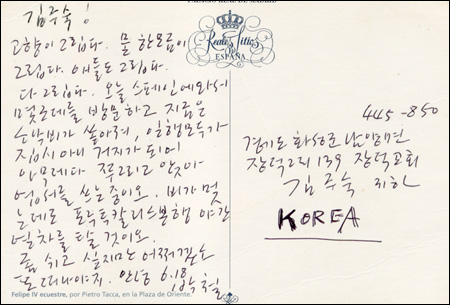 김주숙!
고향이 그립다. 물 한모금이
그립다. 애들도 그립다.
다 그립다. 오늘 스페인에 와서
몇군데를 방문하고 지금은
소낙비가 쏟아져, 일행모두가
집시 아니 거지가 되어
아무데다 쭈그리고 앉아
엽서를 쓰는 중이오. 비가 멎
는데로 포루투칼 리스본행 야간
열차를 탈 것이오.
좀 쉬고 싶지만 어쩌겠소
또 떠나야지. 안녕 6.18.
Reales Sitios
de
ESPAÑA
445-850
경기도 화성군 남양면
장덕2리 139 장덕교회
김주숙 귀하
KOREA
Felipe IV ecuestre, por Pietro Tacca, en la Plaza de Oriente.